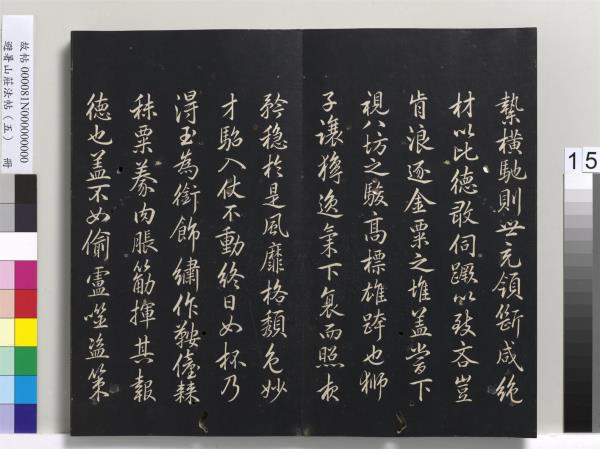 縶橫馳則世无領斷咸絕
材以比德敢伺蹶以致吝豈
肯浪逐金粟之堆盖當下
視八坊之駿高標雄跨也獅
子讓獰逸氣下衰而照夜
矜稳於是風靡格頹色妙
才駘入仗不動終日如杯乃
得玉為銜飾繡作鞍儓棘
秣粟豢肉脹筋揮其報
德也盖不如偷盧噬盜策
故帖 000081N000000000
避暑山莊法帖（五） 冊
15